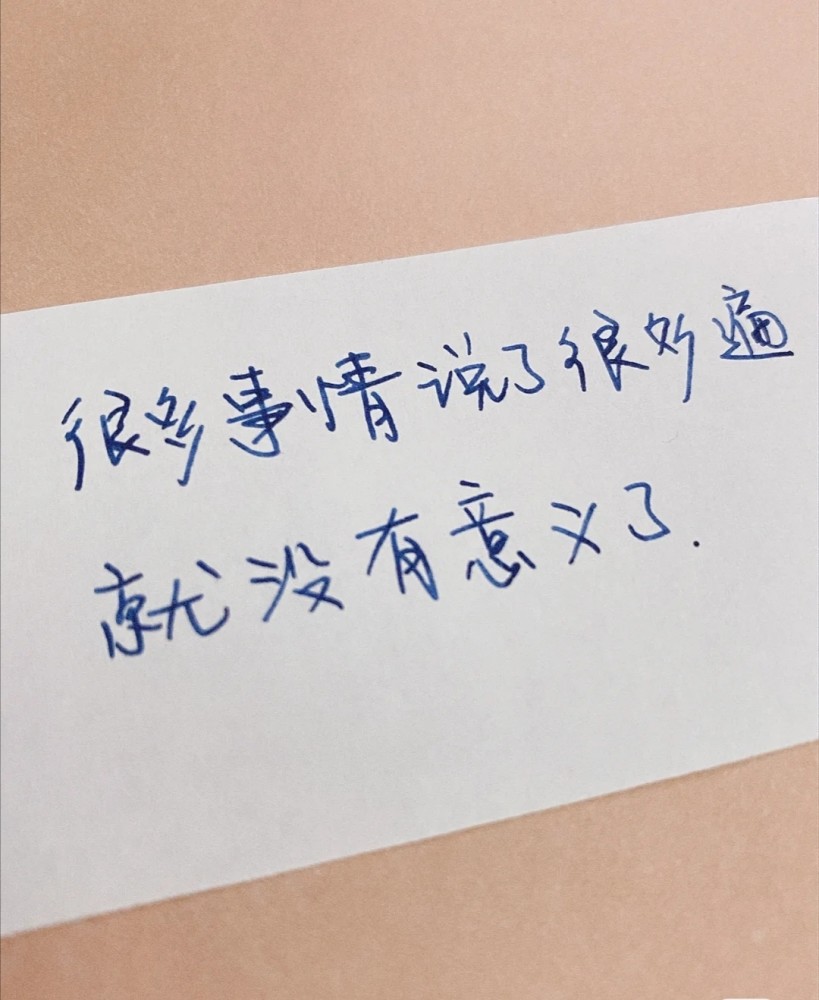 很多事情说了很多遍
就没有意义了.